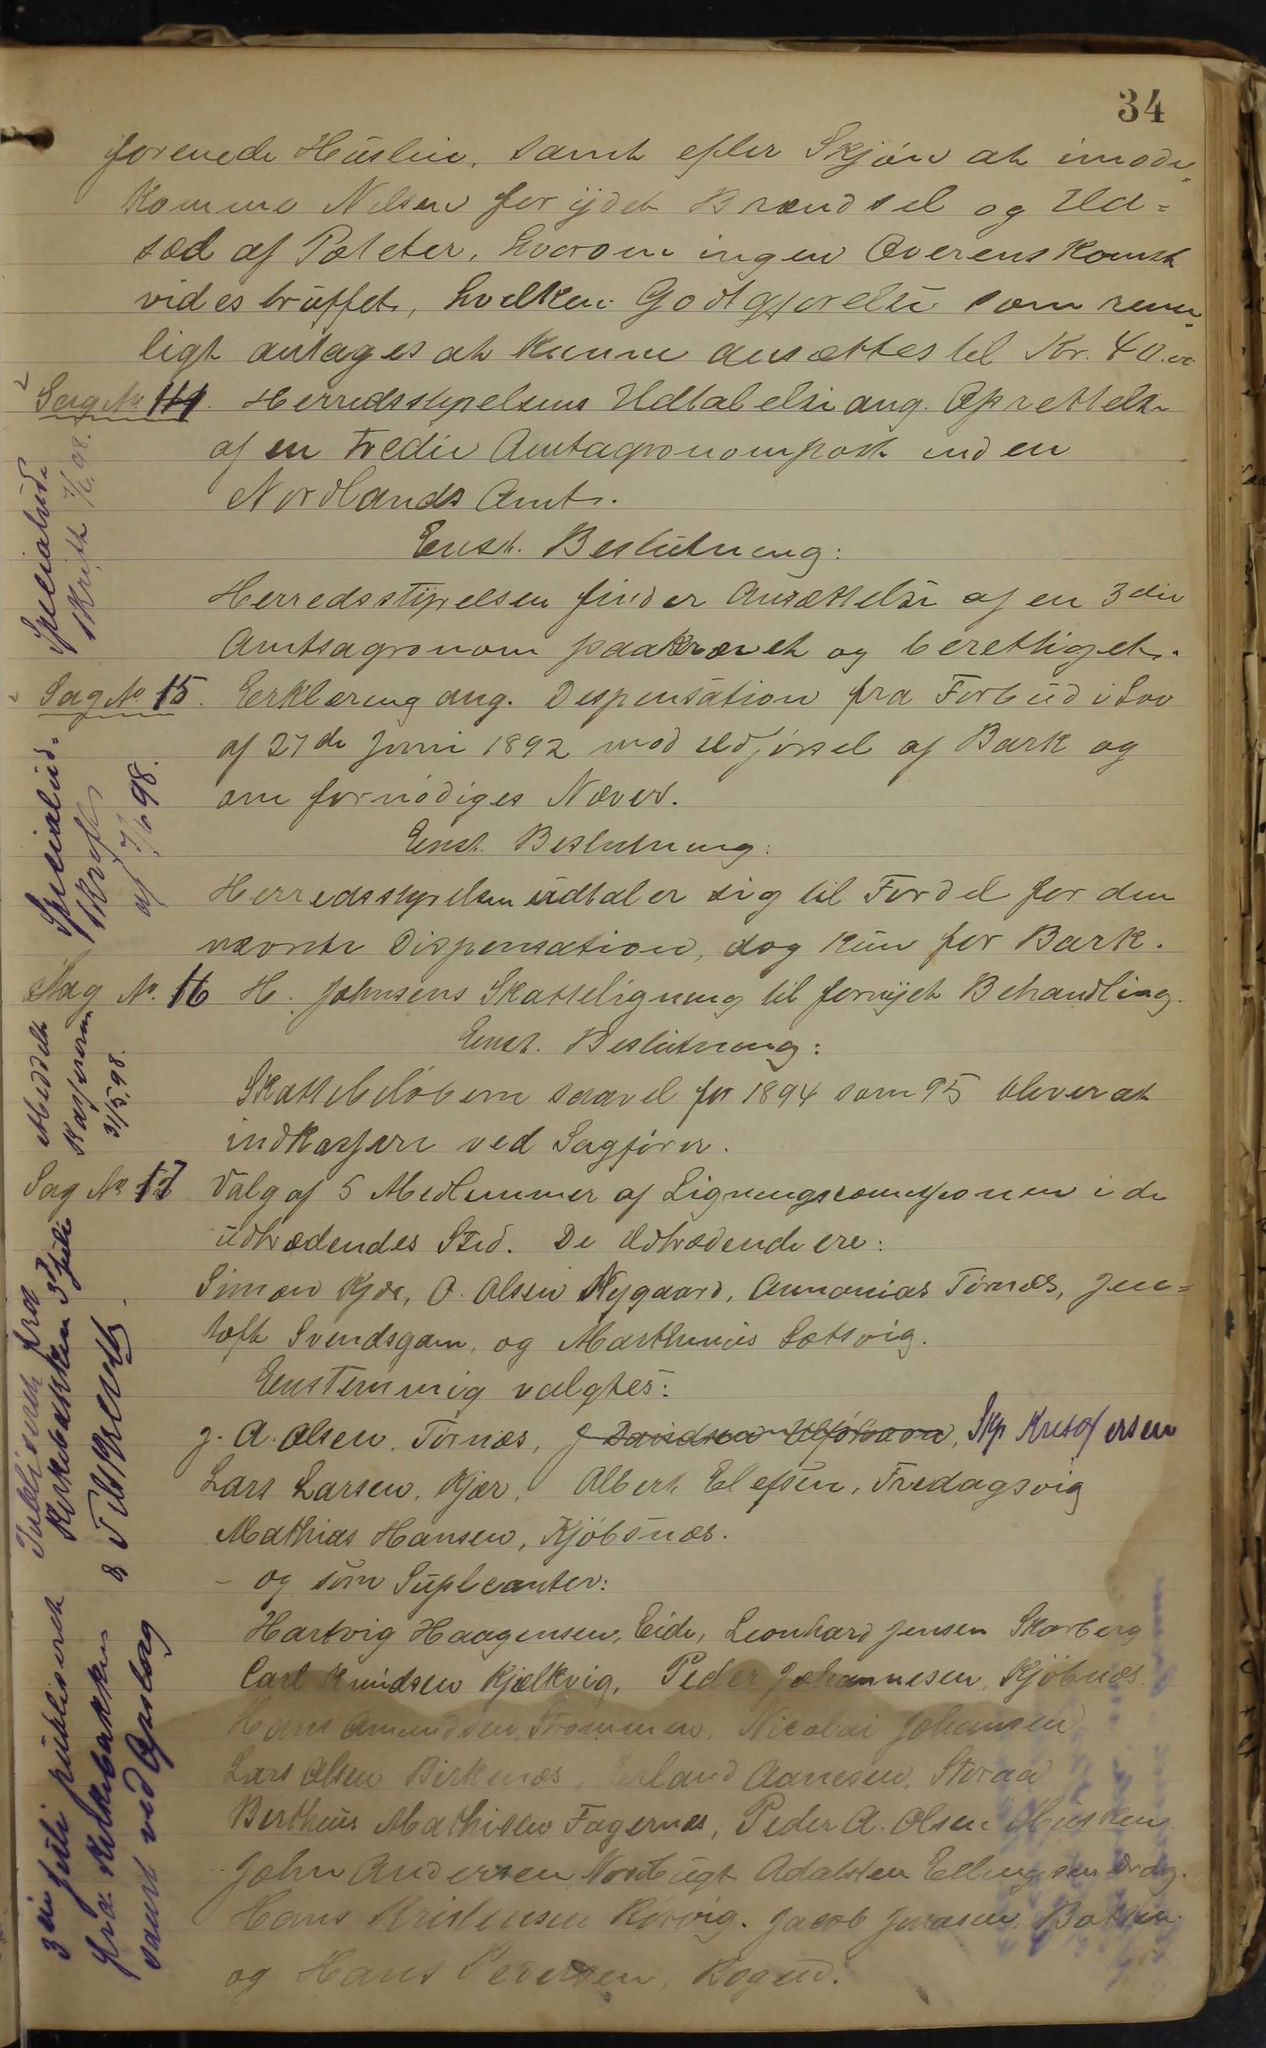 34
forenede Huslie, samt efter Skjøn at imøde-
komme Nilsen for ydet Brændsel og Ud=
sæd af Poteter, hvorom ingen Overenskomst
vides truffet, hvilken Godtgjørelse som rime-
ligt antages at kunne ansættes til Kr. 40.00
Sag No 14. Herredsstyrelsens Udtalelse ang. Oprettelse
af en tredie Amtagronompost inden
Nordlands Amt.
Enst. Beslutning:
Herredsstyrelsen finder Ansættelse af en 3die
Amtsagronom paakrævet og berettiget.
Specialud-
skrift 7/6 98.
Sag No 15. Erklæring ang. Dispensation fra Forbud i Lov
af 27de Juni 1892 mod Udførsel af Bark og
om fornødiges Næver.
Enst. Beslutning:
Herredsstyrelsen udtaler sig til Fordel for den
nævnte Dispensation, dog kun for Bark.
Specialud-
skrift
af 7/6 98.
Sag No. 16 H. Johnsens Skatteligning til fornyet Behandling.
Enst. Beslutning:
Skattebeløbene saavel for 1894 som 95 bliver at
indkassere ved Sagfører.
Meddelt
Kassereren
31/5 98.
Sag No 17 Valg af 5 Medlemmer af Ligningscomissionen i de
udtrædendes Sted. De Udtrædende ere:
Simon Kjær, O. Olsen Nygaard, Annanias Tørnæs, Jen=
toft Svendsgam, og Marthinus Sætsvig.
Enstemmig valgtes:
J. A. Olsen, Tørnæs, J Davidsen, Skp Kristofersen
Lars Larsen, Kjær, Albert Elefsen, Fredagsvig
Mathias Hansen, Kjøbsnæs.
- og som Supleanter:
Hartvig Haagensen, Eide, Leonhard Jensen Skarberg
Carl Knudsen Kjælkvig, Peder Johannesen, Kjøbnæs
Hans Amundsen, Strømmen, Nicolai Johansen
Lars Olsen Birknæs, Erland Aanesen, Storaa
Bertheus Mathisen Fagernæs, Peder A. Olsen Husken
John Andersen Nordbugt Adalsten Ellingsen
Hans Kristensen Rørvig. Jacob Jonasen
og Hans Pedersen, Bogen.
Publiseret fra
Kirkebakken 3die Juli
& Tilskrevet
3die Juli publiseret
fra Kirkebakken
samt ved Opslag